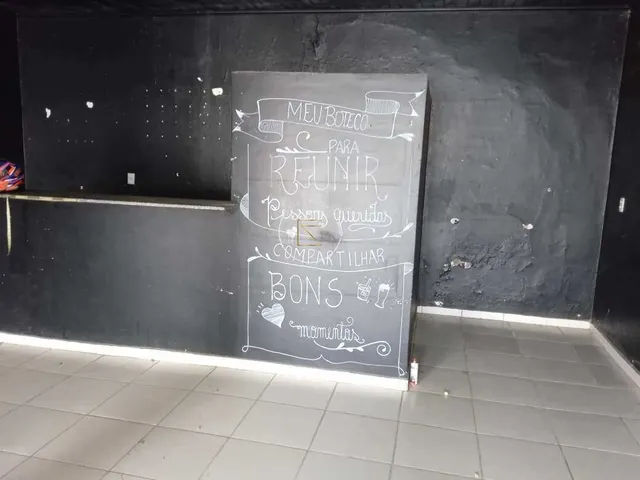 MEU BOTECO
PARA
REUNIR
Pessoas queridas
COMPARTILHAR
BONS
momentos